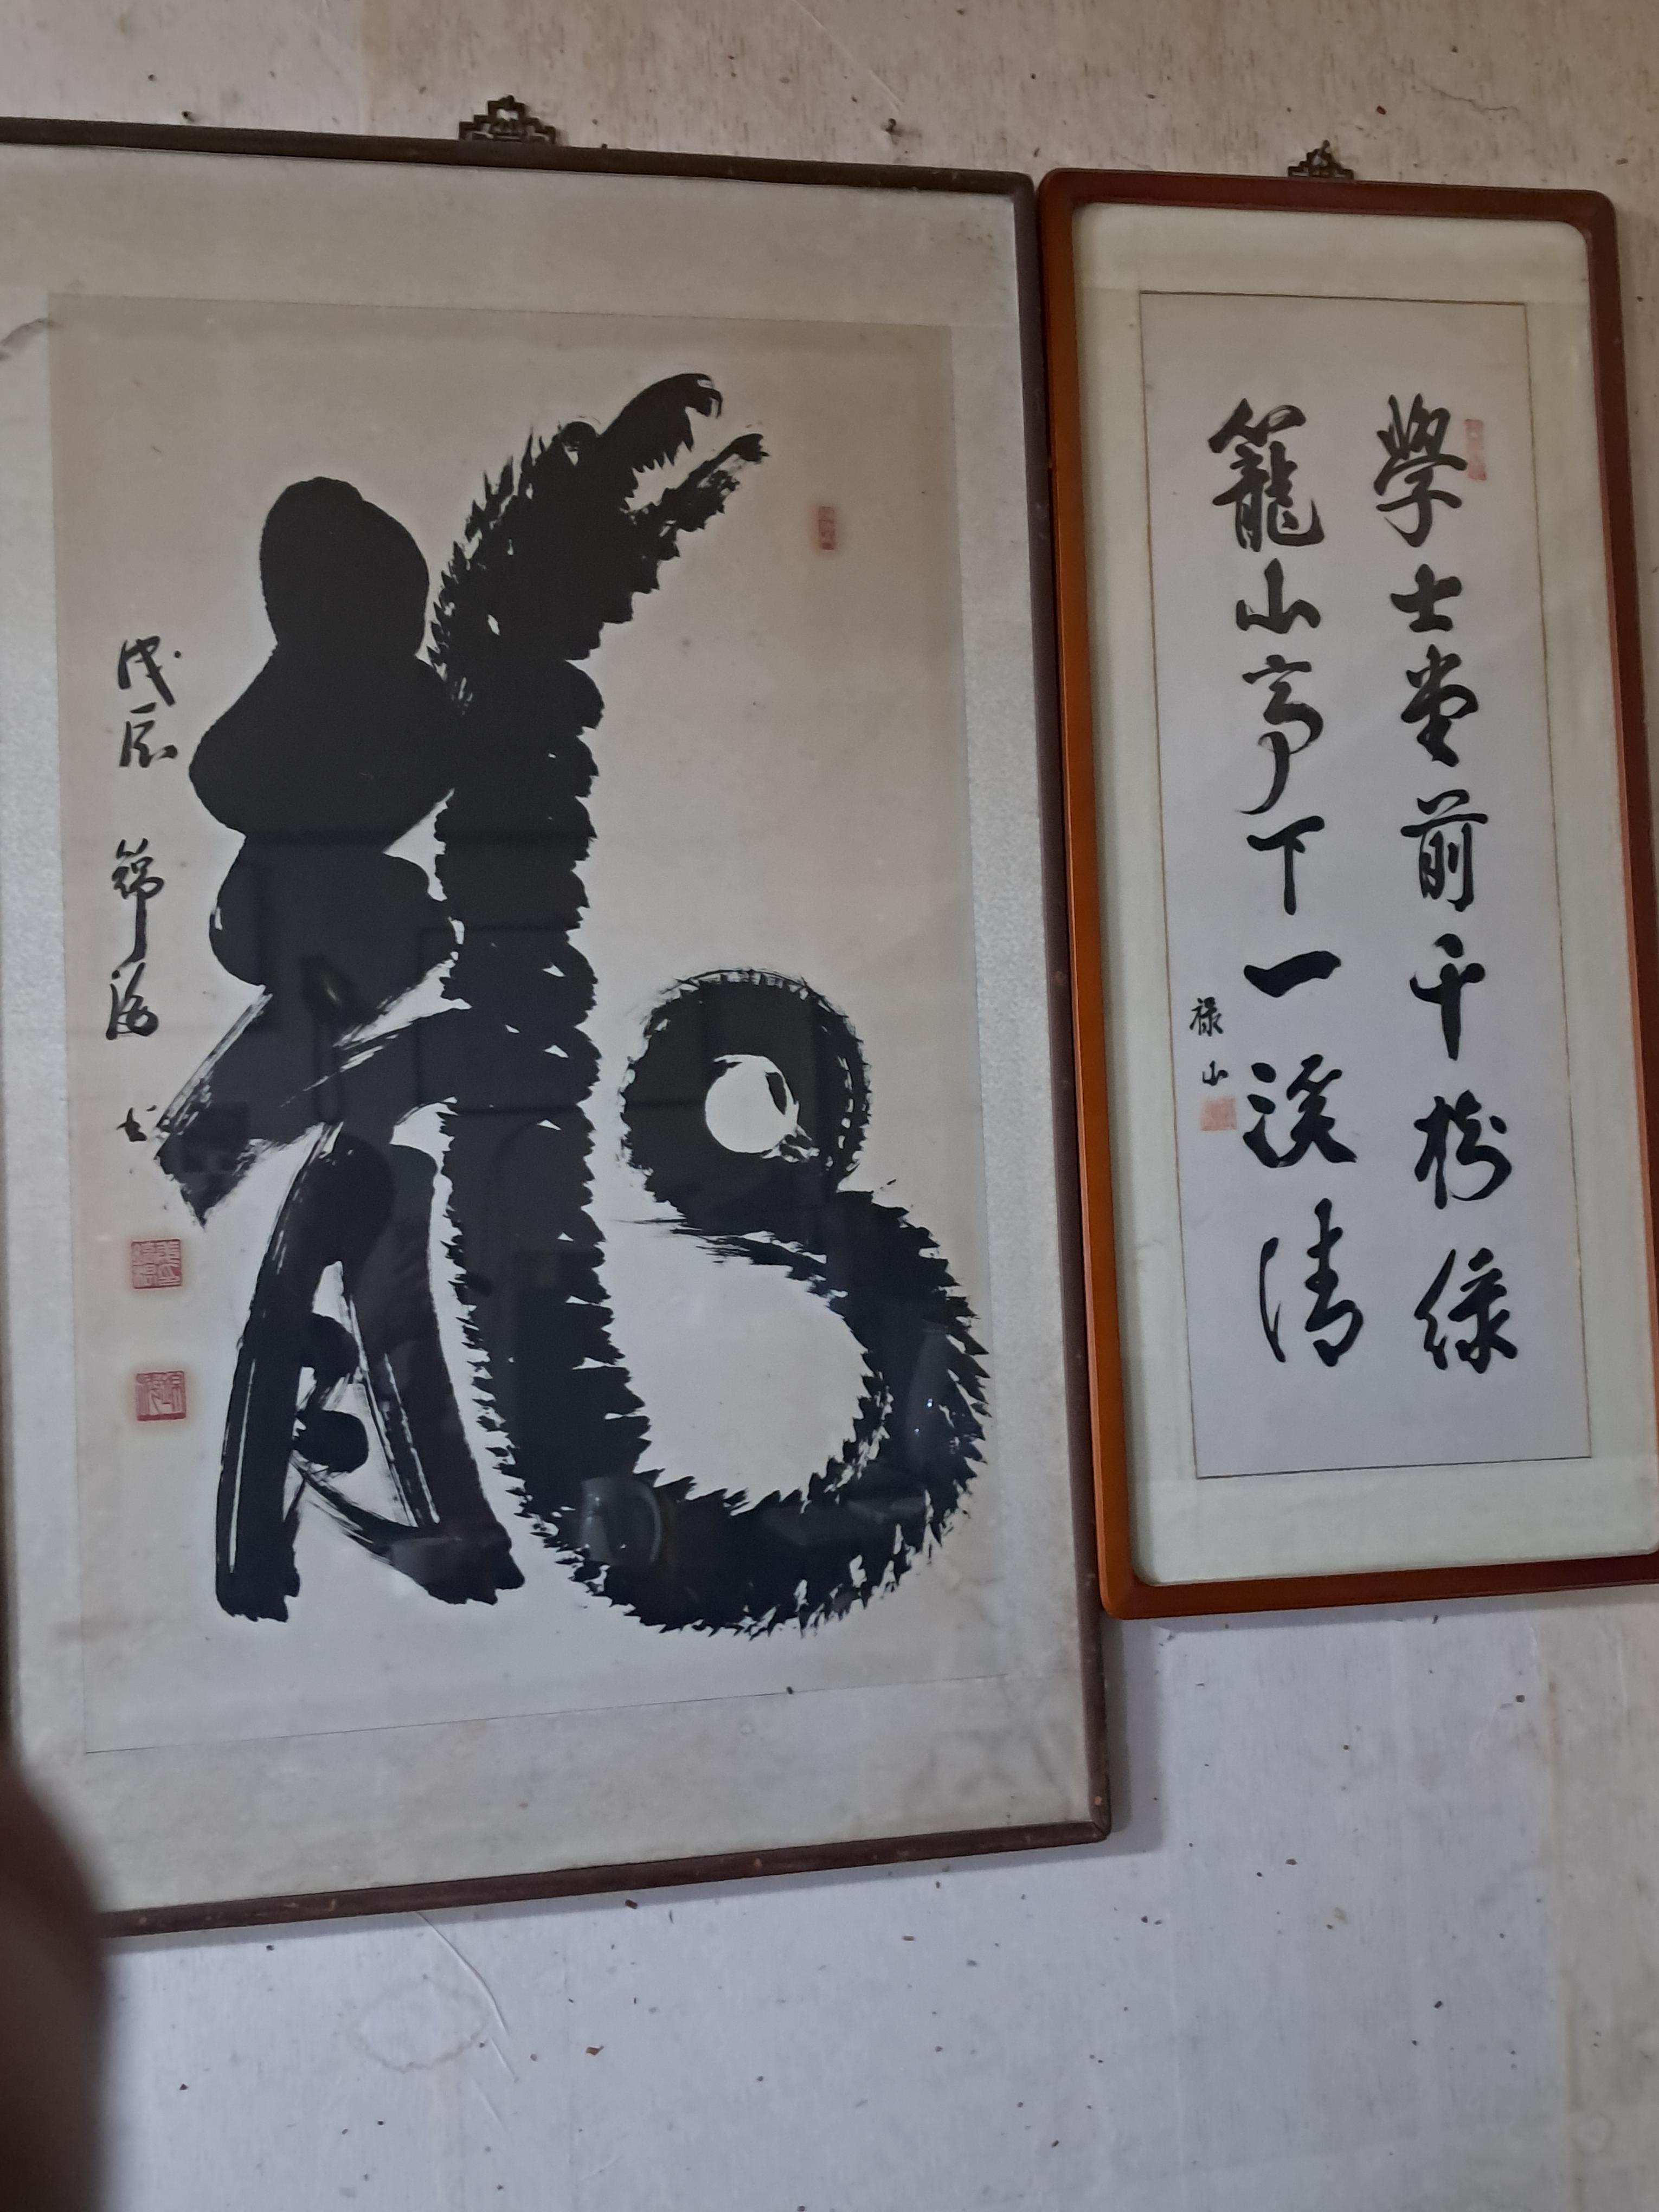 學士堂前千樹綠
籠山亭下一溪清
祿山
戊辰 錦海 書